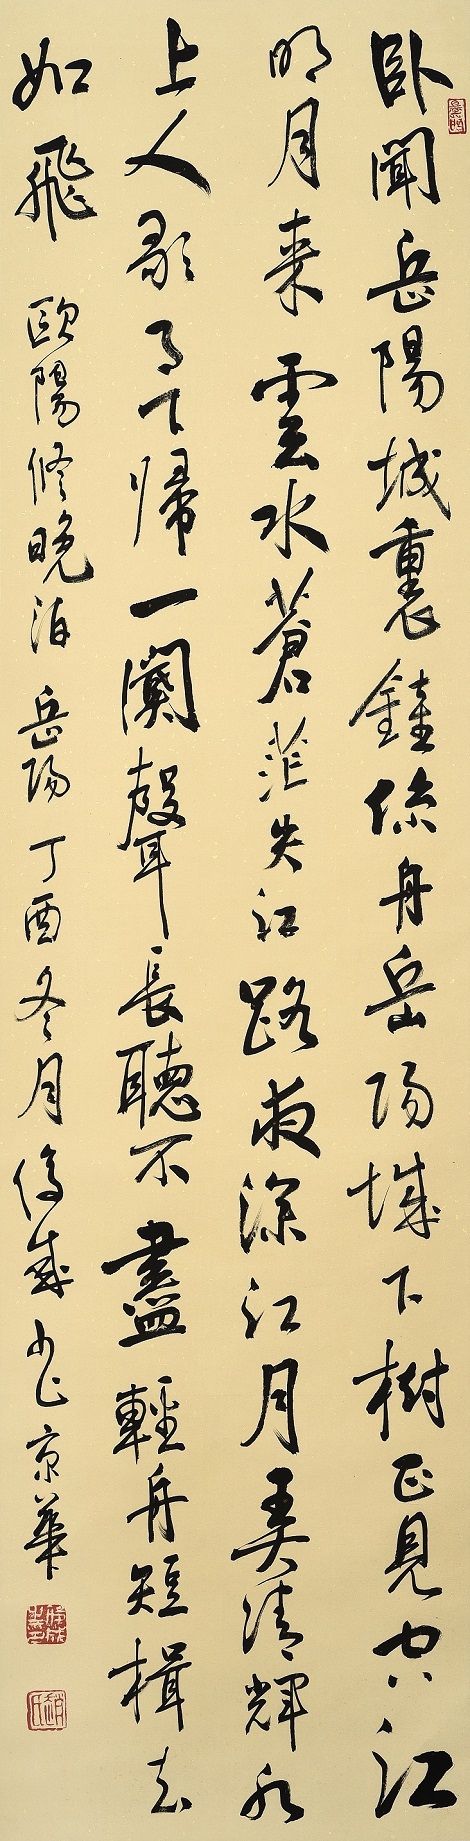 卧聞岳陽城裏鐘係舟岳陽城下樹正見空江
明月来雲水蒼茫失江路夜深江月美清輝水
上人歌月下歸一闋聲長聽不盡輕舟短楫去
如飛 歐陽修晚泊岳陽丁酉冬月 京華